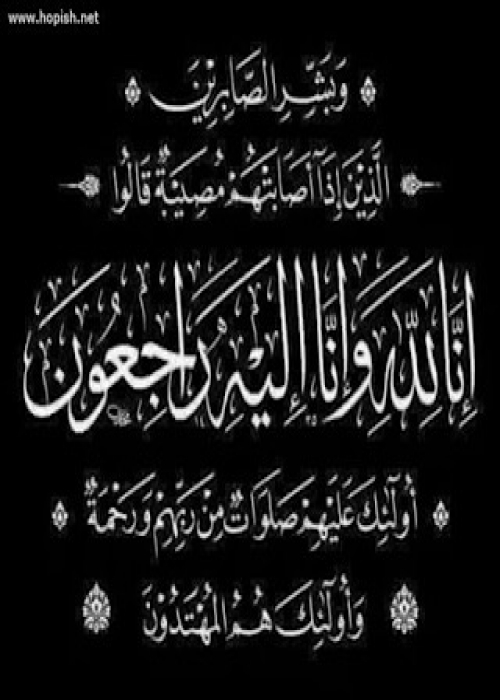 www.hopish.net
وَبَشِّرِ الصَّابِرِيْنَ
الَّذِيْنَ إِذَآ أَصَابَتْهُمْ مُصِيْبَةٌ قَالُوا
إِنَّا لِلّٰهِ وَإِنَّا إِلَيْهِ رَاجِعُونَ
أُولٰئِكَ عَلَيْهِمْ صَلَوَاتٌ مِنْ رَبِّهِمْ وَرَحْمَةٌ
وَأُولٰئِكَ هُمُ الْمُهْتَدُوْنَ